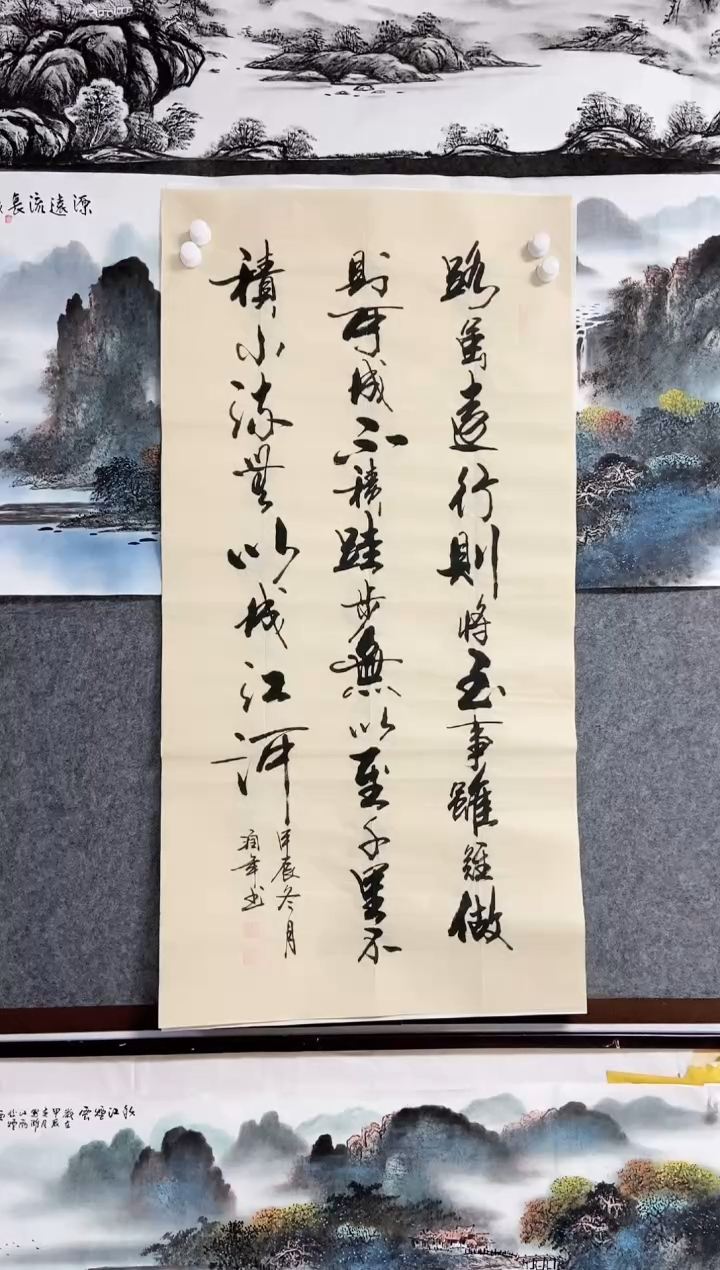 源遠流長
路虽遠行則將至事雖難做
則可成不積跬步無以至千里不
積小流無以成江河
甲辰冬月
年书
秋江煙雲